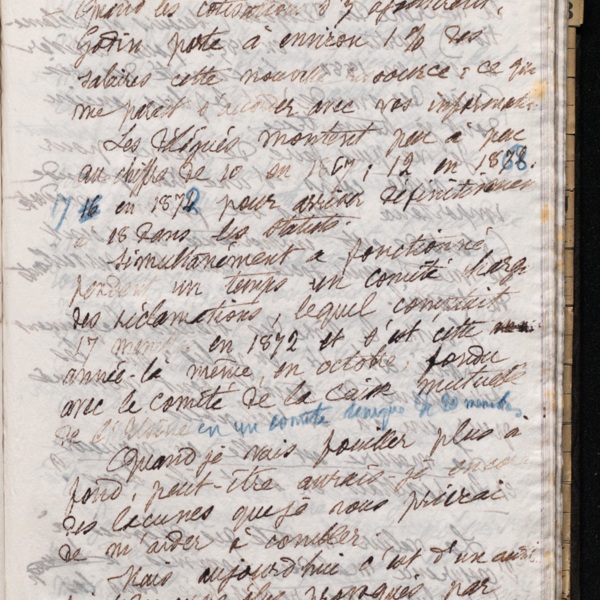 quand les cotisations s'y ajoutèrent.
Godin porte à environ 1% des
salaires cette nouvelle ressource : ce qui
me paraît s'accorder avec vos informat.
Les Délégués montent peu à peu
au chiffre de 10 en 1867 ; 12 en 1868.
17 en 1872 pour arriver définitivement
à 18 dans les statuts.
Simultanément a fonctionné
pendant un temps un comité chargé
des réclamations, lequel comptait
17 membres en 1872 et s'est cette
année-là même, en octobre, fondu
avec le comité de la Caisse mutuelle
de en un comité unique de 20 membres.
Quand je vais fouiller plus à
fond, peut-être aurais-je encore
des lacunes que je vous prierai
de m'aider à combler.
Mais aujourd'hui c'est d'un autre
par